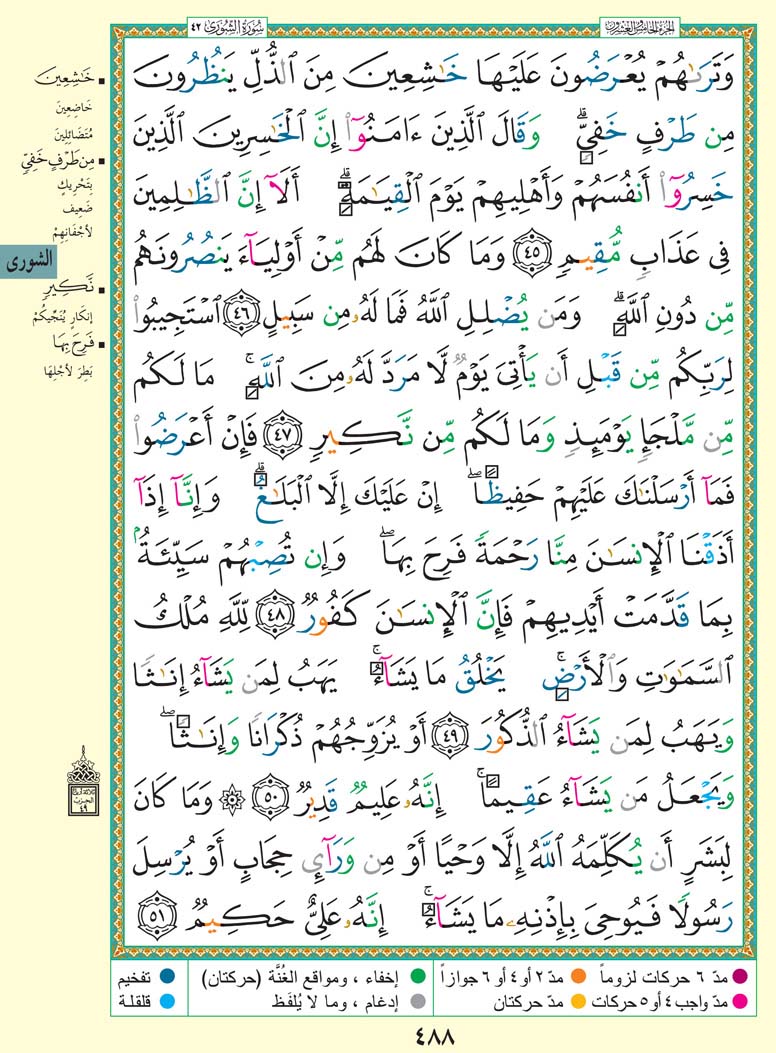 الجزء الخامس والعشرون
سورة الشورى ٤٢
وَتَرَىٰهُمْ يُعْرَضُونَ عَلَيْهَا خَٰشِعِينَ مِنَ ٱلذُّلِّ يَنظُرُونَ
مِن طَرْفٍ خَفِىٍّۗ وَقَالَ ٱلَّذِينَ ءَامَنُوٓا۟ إِنَّ ٱلْخَٰسِرِينَ ٱلَّذِينَ
خَسِرُوٓا۟ أَنفُسَهُمْ وَأَهْلِيهِمْ يَوْمَ ٱلْقِيَٰمَةِۗ أَلَآ إِنَّ ٱلظَّٰلِمِينَ
فِى عَذَابٍ مُّقِيمٍ ٤٥ وَمَا كَانَ لَهُم مِّنْ أَوْلِيَآءَ يَنصُرُونَهُم
مِّن دُونِ ٱللَّهِۗ وَمَن يُضْلِلِ ٱللَّهُ فَمَا لَهُۥ مِن سَبِيلٍ ٤٦ ٱسْتَجِيبُوا۟
لِرَبِّكُم مِّن قَبْلِ أَن يَأْتِىَ يَوْمٌ لَّا مَرَدَّ لَهُۥ مِنَ ٱللَّهِۚ مَا لَكُم
مِّن مَّلْجَإٍ يَوْمَئِذٍ وَمَا لَكُم مِّن نَّكِيرٍ ٤٧ فَإِنْ أَعْرَضُوا۟
فَمَآ أَرْسَلْنَٰكَ عَلَيْهِمْ حَفِيظًاۖ إِنْ عَلَيْكَ إِلَّا ٱلْبَلَٰغُۗ وَإِنَّآ إِذَآ
أَذَقْنَا ٱلْإِنسَٰنَ مِنَّا رَحْمَةً فَرِحَ بِهَاۖ وَإِن تُصِبْهُمْ سَيِّئَةٌۢ
بِمَا قَدَّمَتْ أَيْدِيهِمْ فَإِنَّ ٱلْإِنسَٰنَ كَفُورٌ ٤٨ لِّلَّهِ مُلْكُ
ٱلسَّمَٰوَٰتِ وَٱلْأَرْضِۚ يَخْلُقُ مَا يَشَآءُۚ يَهَبُ لِمَن يَشَآءُ إِنَٰثًا
وَيَهَبُ لِمَن يَشَآءُ ٱلذُّكُورَ ٤٩ أَوْ يُزَوِّجُهُمْ ذُكْرَانًا وَإِنَٰثًاۖ
وَيَجْعَلُ مَن يَشَآءُ عَقِيمًاۚ إِنَّهُۥ عَلِيمٌ قَدِيرٌ ٥٠ ۞ وَمَا كَانَ
لِبَشَرٍ أَن يُكَلِّمَهُ ٱللَّهُ إِلَّا وَحْيًا أَوْ مِن وَرَآئِ حِجَابٍ أَوْ يُرْسِلَ
رَسُولًا فَيُوحِىَ بِإِذْنِهِۦ مَا يَشَآءُۚ إِنَّهُۥ عَلِىٌّ حَكِيمٌ ٥١
▪ خَٰشِعِينَ
خَاضِعِينَ
مُتَضَائِلِينَ
▪ مِن طَرْفٍ خَفِىٍّ
بِتَحْرِيكٍ
ضَعِيف
لأجْفَانِهِمْ
الشورى
▪ نَّكِيرٍ
إنكَارٍ يُنَجِّيكُمْ
▪ فَرِحَ بِهَا
بَطِرَ لأجْلِهَا
ثلاثة أرباع
الحزب
٤٩
مدّ ٦ حركات لزوماً
مدّ ٢ أو ٤ أو ٦ جوازاً
إخفاء ، ومواقع الغُنَّة (حركتان)
تفخيم
مدّ واجب ٤ أو ٥ حركات
مدّ حركتان
إدغام ، وما لا يُلفَظ
قلقلة
٤٨٨